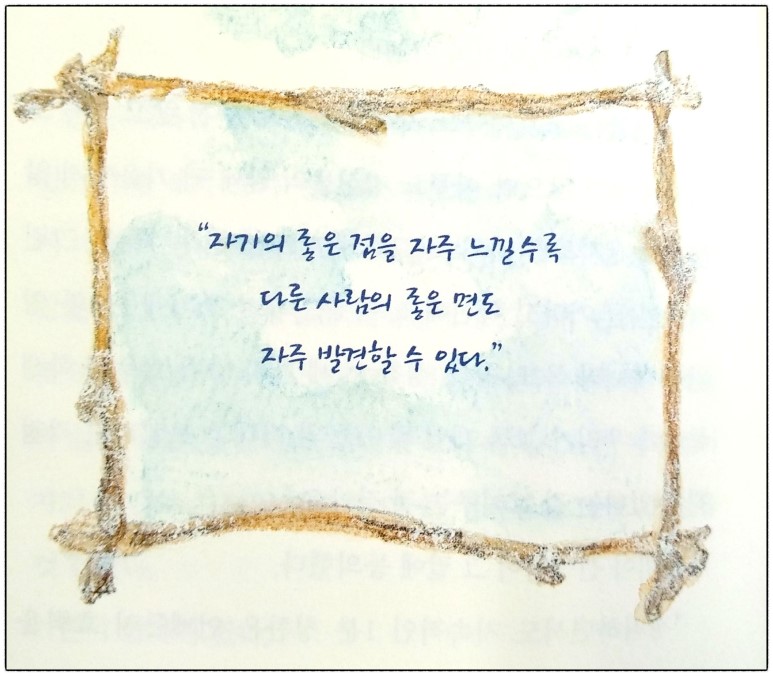 “자기의 좋은 점을 자주 느낄수록
다른 사람의 좋은 면도
자주 발견할 수 있다.”